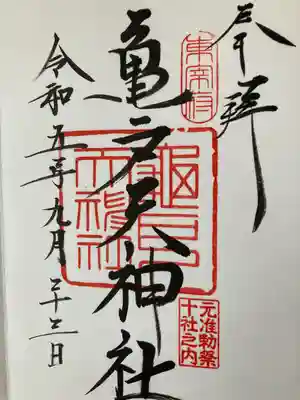 奉拝
東宰府
亀戸天神社
龜戸
天神社
元准勅祭
十社之内
令和五年九月二十三日